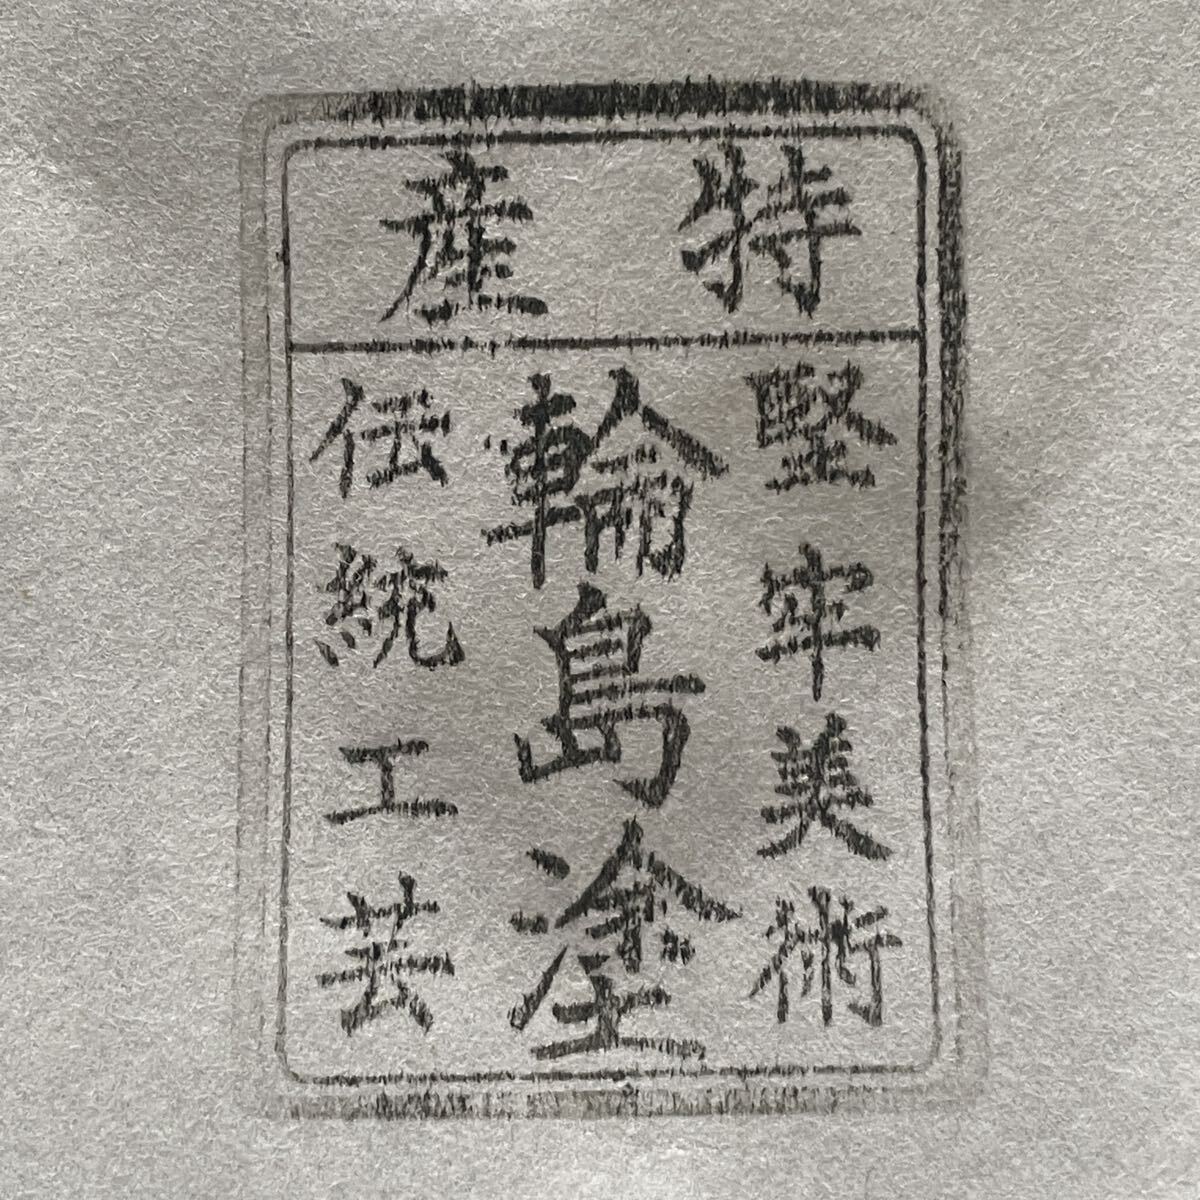 特産
堅牢美術
輪島塗
伝統工芸